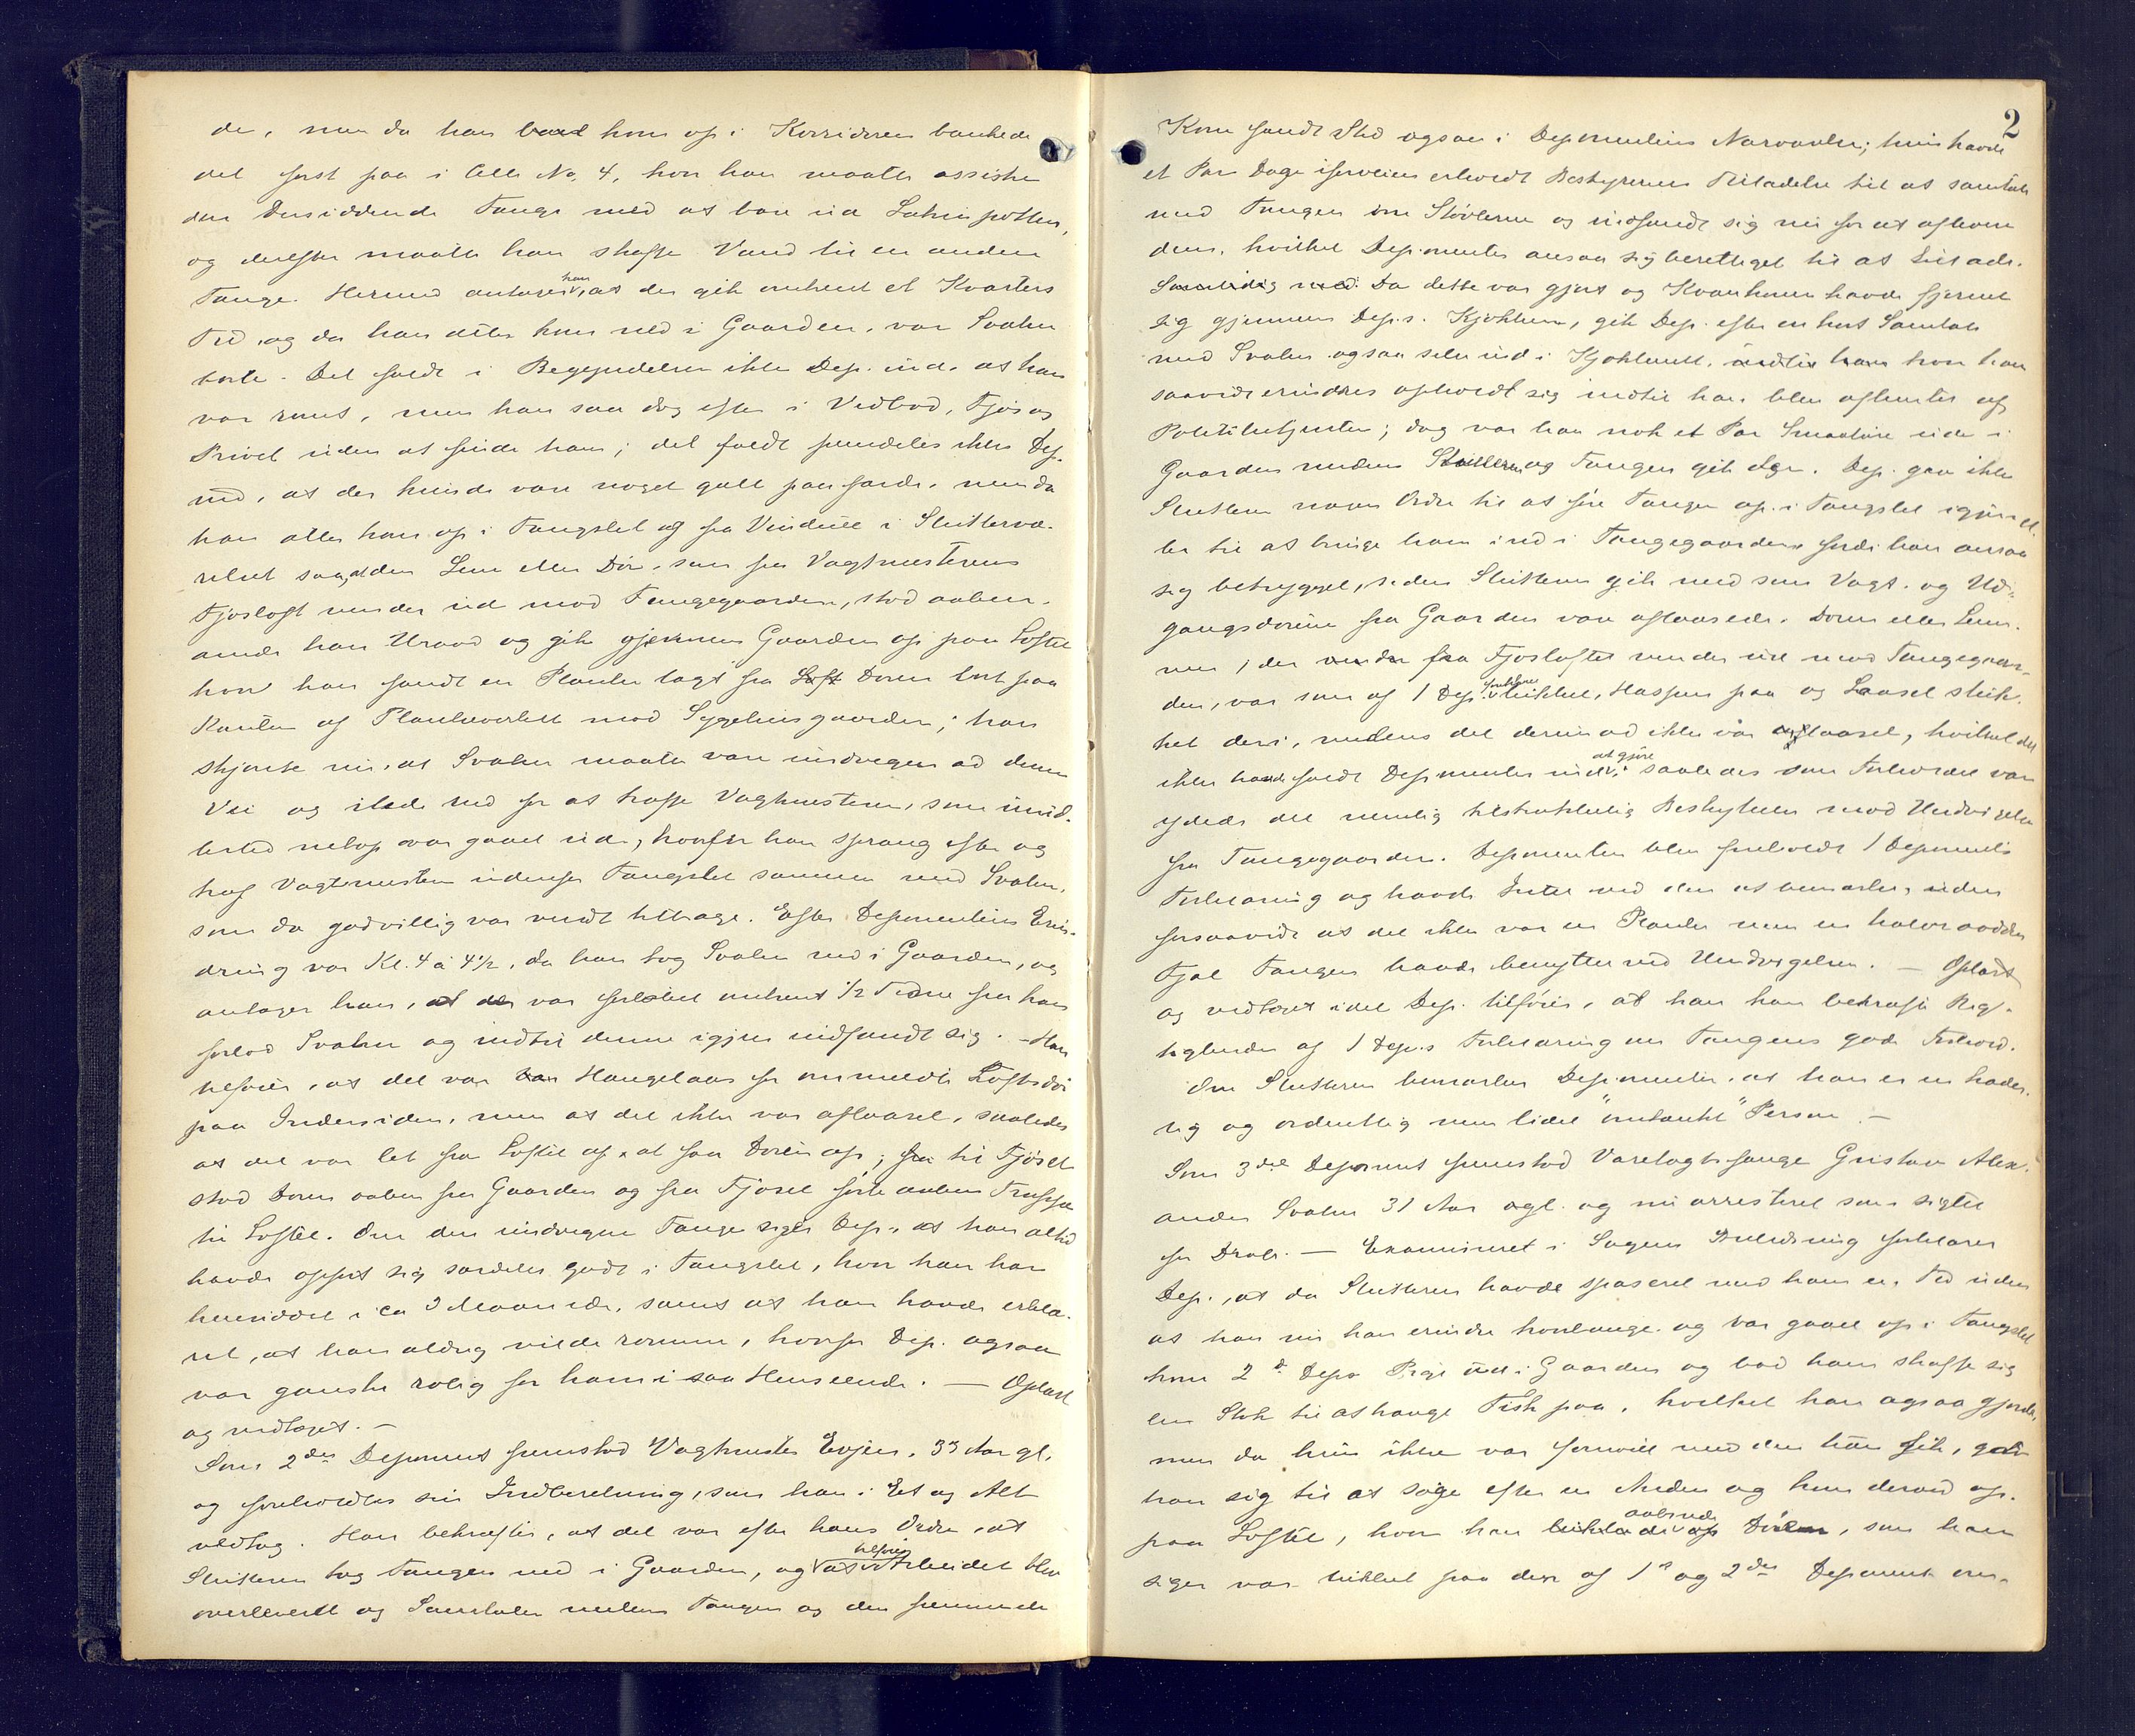 de, men da han kom op i Korridoren bankede
det først paa i Celle No. 4, hvor han maatte assistere
den Detsiddende Fange med at bære ud Latrinpotten,
og derefter maatte han skaffe Vand til en anden
Fange. Hermed antager han, at der gik omtrent et Kvarters
Tid, og da han atter kom ned i Gaarden, var Svalen
borte. Det faldt i Begyndelsen ikke Dep. ind, at han
var rømt, men han saa dog efter i Vedbod, Fjøs og
Privet uden at finde ham; det faldt fremdeles ikke Dep.
ind, at der kunde være noget galt paafærde, men da
han atter kom op i Fængslet og fra Vinduet i Sluttervæ-
relset saa, at den Lem eller Dør, som fra Vagtmesterens
Fjøsloft vender ud mod Fangegaarden, stod aaben,
anede han Uraad og gik gjennem Gaarden op paa Loftet
hvor han fandt en Planke lagt fra Døren bort paa
Kanten af Plankeværket mod Sygehusgaarden; han
skjønte nu, at Svalen maatte være undvegen ad denne
Vei og ilede ned for at træffe Vagtmesteren, som imid-
lertid netop var gaaet ud, hvorfor han sprang efter og
traf Vagtmesteren udenfor Fængslet sammen med Svalen,
som da godvillig var vendt tilbage. Efter Deponentens Erin-
dring var Kl. 4 à 4 1/2, da han tog Svalen ned i Gaarden, og
antager han, at der var forløbet omtrent 1/2 Time fra han
forlod Svalen og indtil denne igjen indfandt sig. – Han
tilføier, at det var Hængelaas for ommeldte Loftsdør
paa Indersiden, men at det ikke var aflaaset, saaledes
at det var let fra Loftet af at faa Døren op; til Fjøset
stod Døren aaben fra Gaarden og fra Fjøset førte aaben Trappe
til Loftet. Om den undvegne Fange siger Dep., at han altid
havde opført sig særdeles godt i Fængslet, hvor han har
hensiddet i ca 3 Maaneder, samt at han havde erklæ-
ret, at han aldrig vilde rømme, hvorfor Dep. ogsaa
var ganske rolig for ham i saa Henseende. — Oplæst
og vedtaget. –
Som 2den Deponent fremstod Vagtmester Evjen, 33 Aar gl.
og foreholdtes sin Indberetning, som han i Et og Alt
vedtog. Han bekræfter, at det var efter hans Ordre, at
Slutteren tog Fangen ned i Gaarden, og tilføier at Arbeidet blev
overleveret og Samtalen mellem Fangen og den fremmede
2
Kone fandt Sted ogsaa i Deponentens Nærværelse; hun havde
et Par Dage iforveien erholdt Bestyrerens Tilladelse til at samtale
med Fangen om Støvlerne og indfandt sig nu for at afhente
dem, hvilket Deponenten ansaa sig berettiget til at tillade.
Samtidig med Da dette var gjort og Kvanden havde fjernet
sig gjennem Dep.s Kjøkken, gik Dep. efter en kort Samtale
med Svalen ogsaa selv ind i Kjøkkenet, hvor han
saavidt erindres opholdt sig indtil han blev afhentet af
Politibetjenten; dog var han nok et Par Smaature ude i
Gaarden medens Slutteren og Fangen gik der. Dep. gav ikke
Slutteren nogen Ordre til at føre Fangen op i Fængslet igjen el-
ler til at bringe ham ind i Fangegaarden fordi han ansaa
sig betrygget, siden Slutteren gik med som Vagt, og Ud-
gangsdørene fra Gaarden vare aflaasede. Døren eller Lem-
men, der fra Fjøsloftet vender ud mod Fangegaar-
den, var som af 1 Dep. forklaret lukket, Haspen paa og Laaset stuk-
ket deri, medens det derimod ikke var aflaaset, hvilket det
ikke faldt Deponenten ind at gjøre, saaledes som Forholdet var
ydede det nemlig tilstrækkelig Beskyttelse mod Undvigelse
fra Fangegaarden. Deponenten blev foreholdt 1 Deponents
Forklaring og havde Intet ved den at bemærke, uden
forsaavidt at det ikke var en Planke men en halvraadden
Fjæl Fangen havde benyttet ved Undvigelsen. — Oplæst
og vedtaget idet Dep. tilføier, at han kan bekræfte Rig-
tigheden af 1 Dep.s Forklaring om Fangens gode Forhold.
Om Slutteren bemærker Deponenten, at han er en hæder-
lig og ordentlig men lidet "omtænkt" Person. –
Som 3die Deponent fremstod Varetægtsfange Gustav Alex-
ander Svalen 31 Aar agl. og nu arresteret som sigtet
for Drab. — Examineret i Sagens Anledning forklarer
Dep., at da Slutteren havde spaseret med ham en Tid uden
at han nu kan erindre hvorlænge og var gaaet op i Fængslet
kom 2d Deps Pige ud i Gaarden og bad ham skaffe sig
en Stok til at hænge Fisk paa, hvilket han ogsaa gjorde,
men da hun ikke var fornøiet med den hun fik, gav
han sig til at søge efter en Anden og kom derved op
paa Loftet, hvor han aabnede Døren, som han
siger var lukket paa den af 1s og 2den Deponent om-